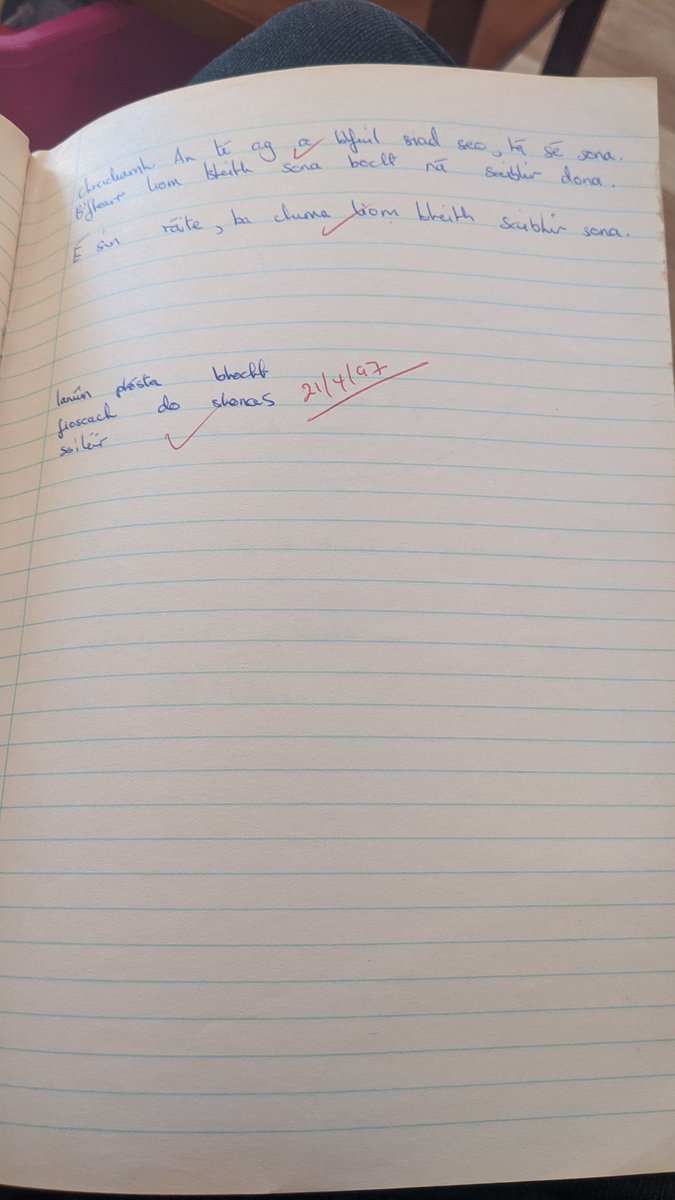 chreideamh. An té ag a bhfuil siad seo, tá sé sona.
B'fhearr liom bheith sona bocht ná saibhir dona.
É sin ráite, ba chuma liom bheith saibhir sona.
lanúin phósta bhocht
fioscach do shonas 21/4/97
soiléir